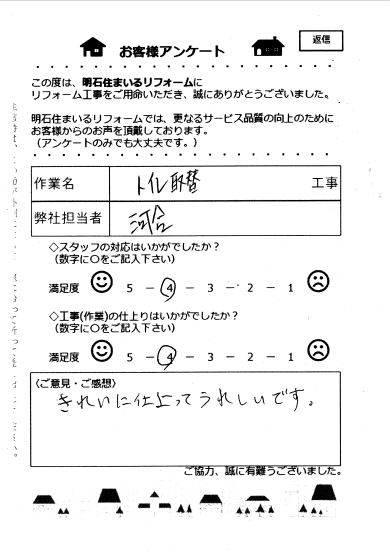 返信
お客様アンケート
この度は、明石住まいるリフォームに
リフォーム工事をご用命いただき、誠にありがとうございました。
明石住まいるリフォームでは、更なるサービス品質の向上のために
お客様からのお声を頂戴しております。
（アンケートのみでも大丈夫です。）
作業名 トイレ取替 工事
弊社担当者 河合
◇スタッフの対応はいかがでしたか？
（数字に〇をご記入下さい）
満足度 5 － 4 － 3 － 2 － 1
◇工事(作業)の仕上りはいかがでしたか？
（数字に〇をご記入下さい）
満足度 5 － 4 － 3 － 2 － 1
〈ご意見・ご感想〉
きれいに仕上ってうれしいです。
ご協力、誠に有難うございました。